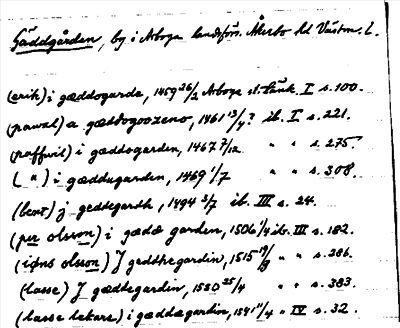 Gäddgården, by i Arboga landsförs. Åkerbo hd Västm. L.
(erik) i gæddogarde, 1459 26/2 Arboga st. tänk. I s. 100.
(pawal) a 1461 13/4? ib. I s. 221.
(paffwil) i gæddogarden, 1467 7/12 " " s. 275.
( " ) i gæddugarden, 1469 1/7 " " s. 308.
(bent) j geddegardh, 1494 3/7 ib. III s. 24.
(per olsson) i gædde garden, 1506 1/4 ib. III s. 182.
(iøns olsson) J 1515 " " s. 286.
(lasse) J gæddegardin, 1520 25/4 " " s. 383.
(lasse lekare) i gæddægardin, 1541 11/4 " IV s. 32.